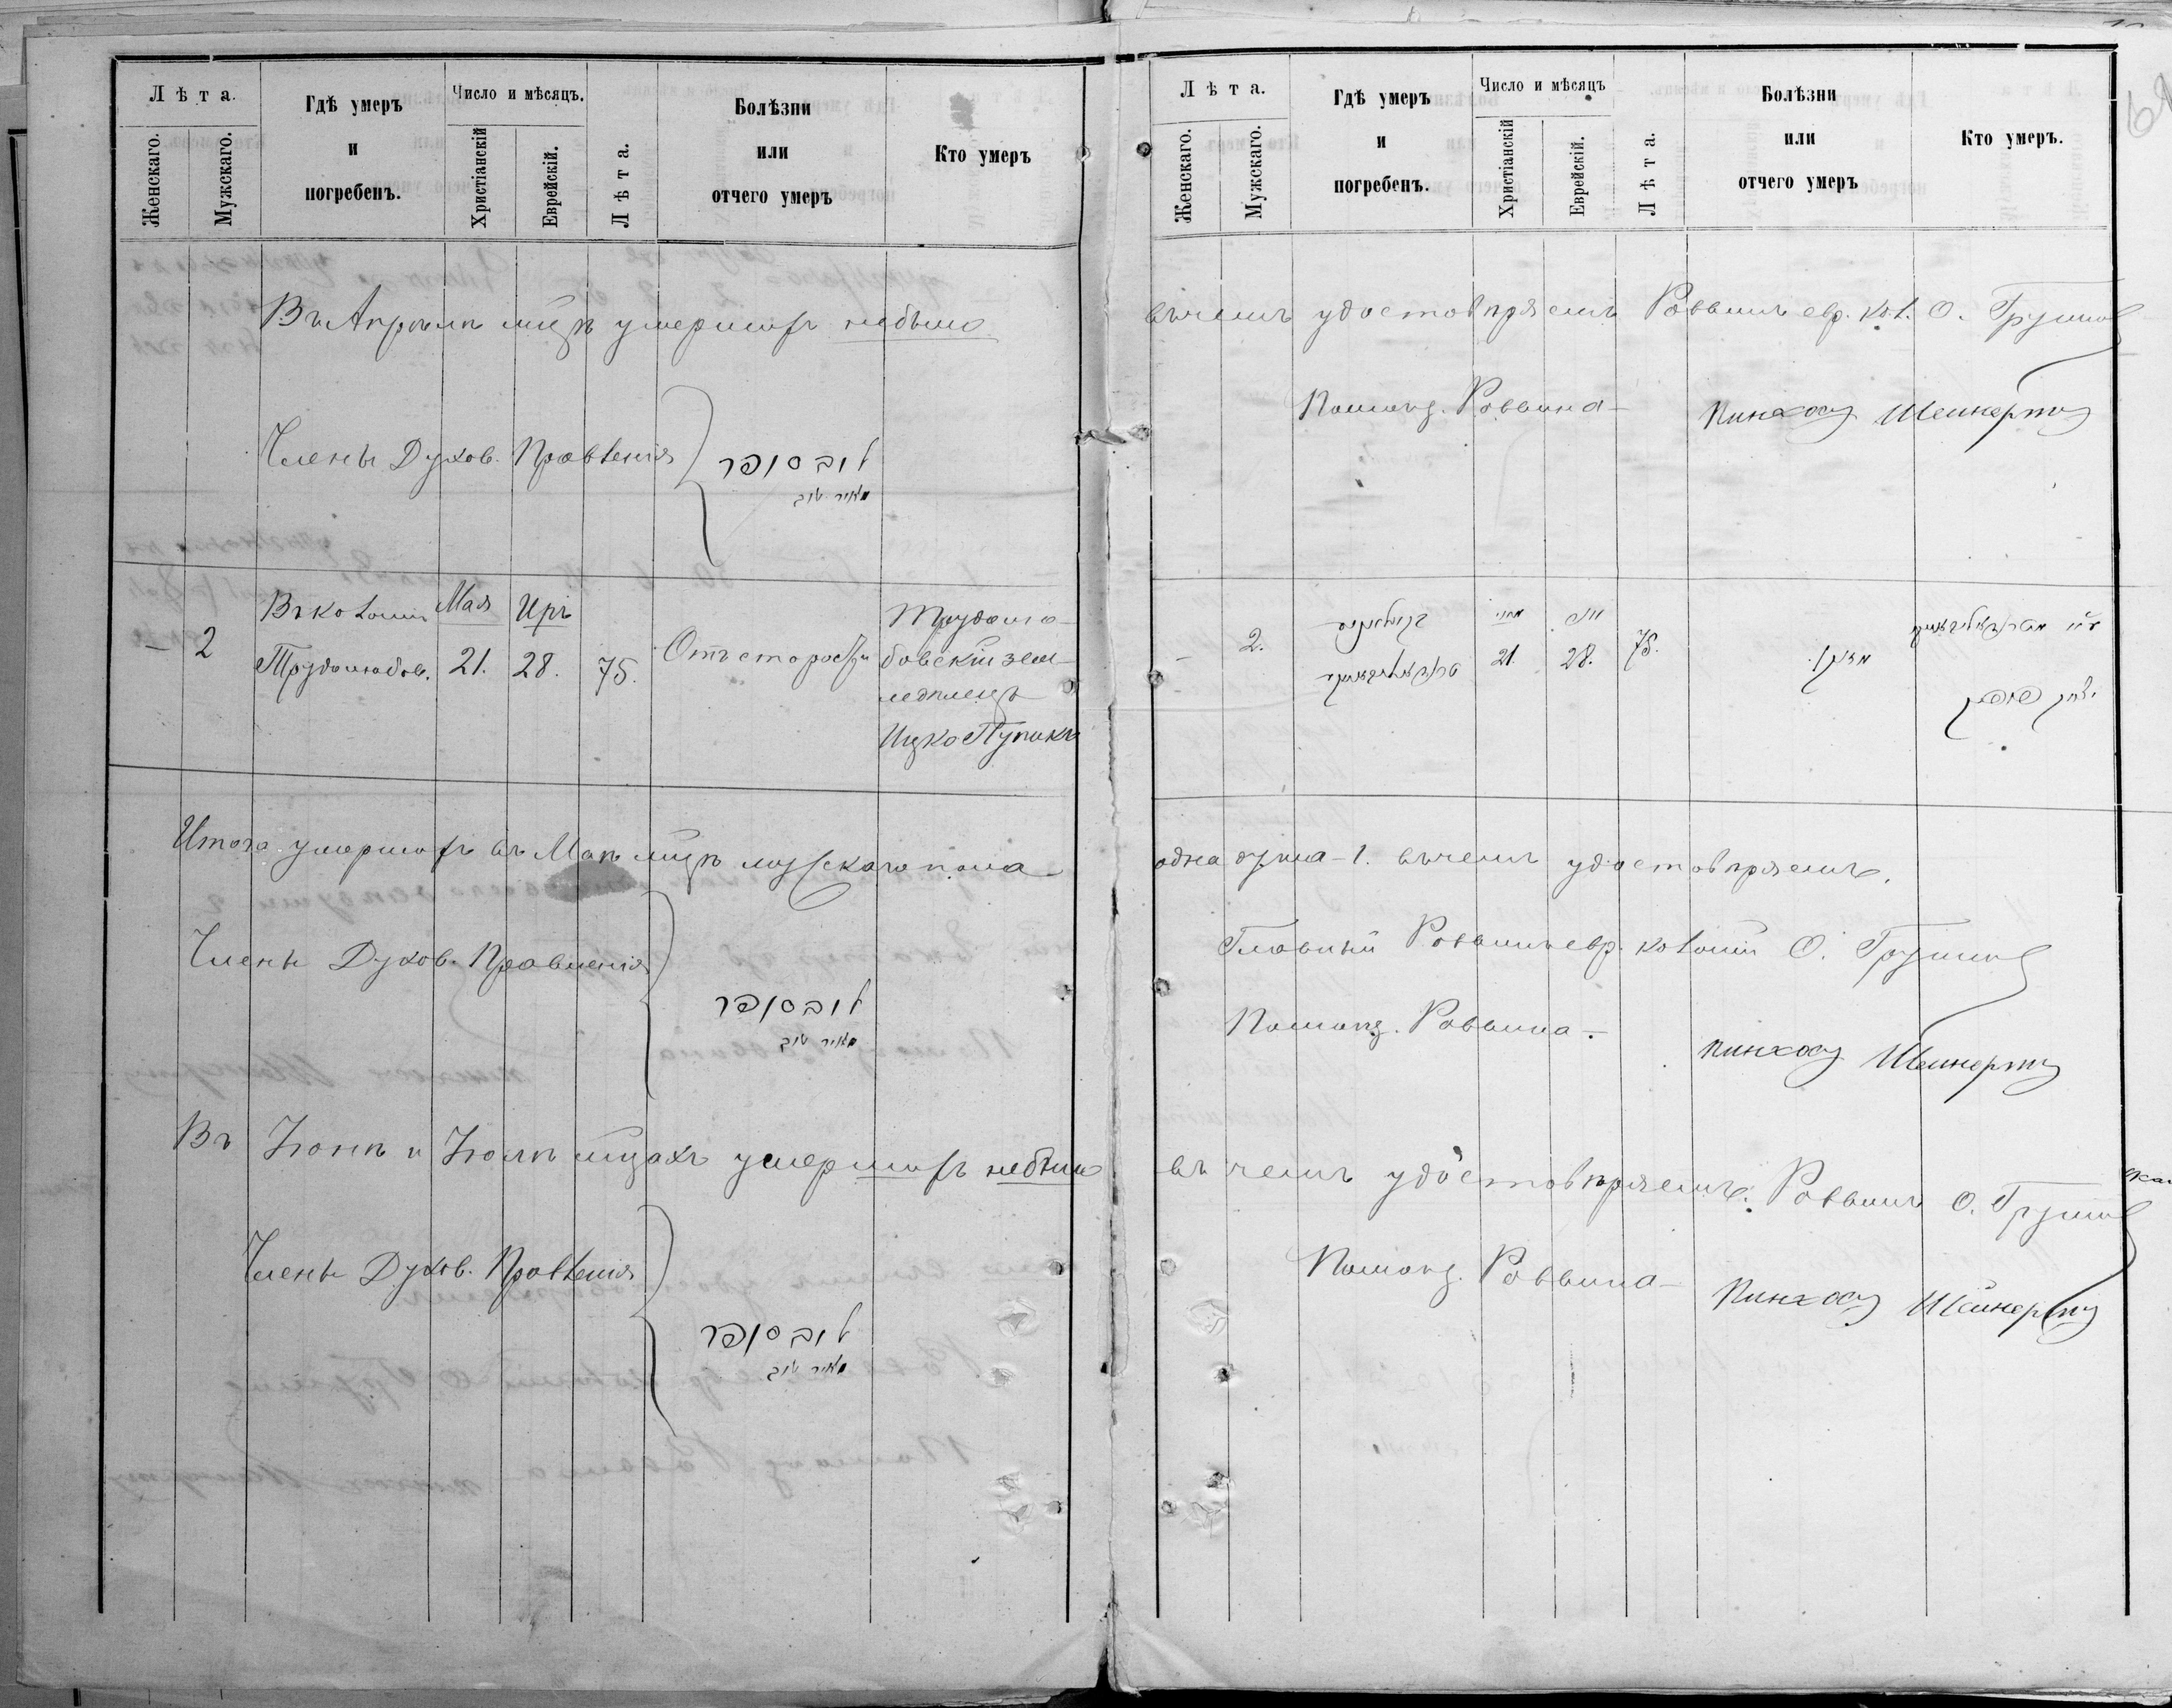 Лѣта.
Женскаго.
Мужскаго.
Гдѣ умеръ
и
погребенъ.
Число и мѣсяцъ.
Христіанскій
Еврейскій.
Лѣта.
Болѣзни
или
отчего умеръ
Кто умеръ
Въ Апрѣлѣ м‑цѣ умершихъ небыло
Члены Духов. Правленія
דוב סופר
מאיר טוב
– 2
Въ колоніи
Трудолюбов.
Мая
21.
Иръ
28.
75.
Отъ старости
Трудолю-
бовскій зем-
ледѣлецъ
Ицко Пупикъ
Итого умершихъ въ Маѣ м‑цѣ мужскаго пола
Члены Духов. Правленія
דוב סופר
מאיר טוב
Въ Іюнѣ и Іюлѣ м‑цахъ умершихъ небыло
Члены Духов. Правленія
דוב סופר
מאיר טוב
Лѣта.
Женскаго.
Мужскаго.
Гдѣ умеръ
и
погребенъ.
Число и мѣсяцъ
Христіанскій
Еврейскій.
Лѣта.
Болѣзни
или
отчего умеръ
Кто умеръ.
въ чемъ удостовѣряемъ Раввинъ евр. кол. О.
Помощ. Раввина – Пинхосъ
– 2.
21.
28.
75.
יצחק
одна душа – 1. въ чемъ удостовѣряемъ.
Главный Раввинъ евр. колоніи О.
Помощ. Раввина – Пинхосъ
въ чемъ удостовѣряемъ. Раввинъ О.
Помощ. Раввина – Пинхосъ